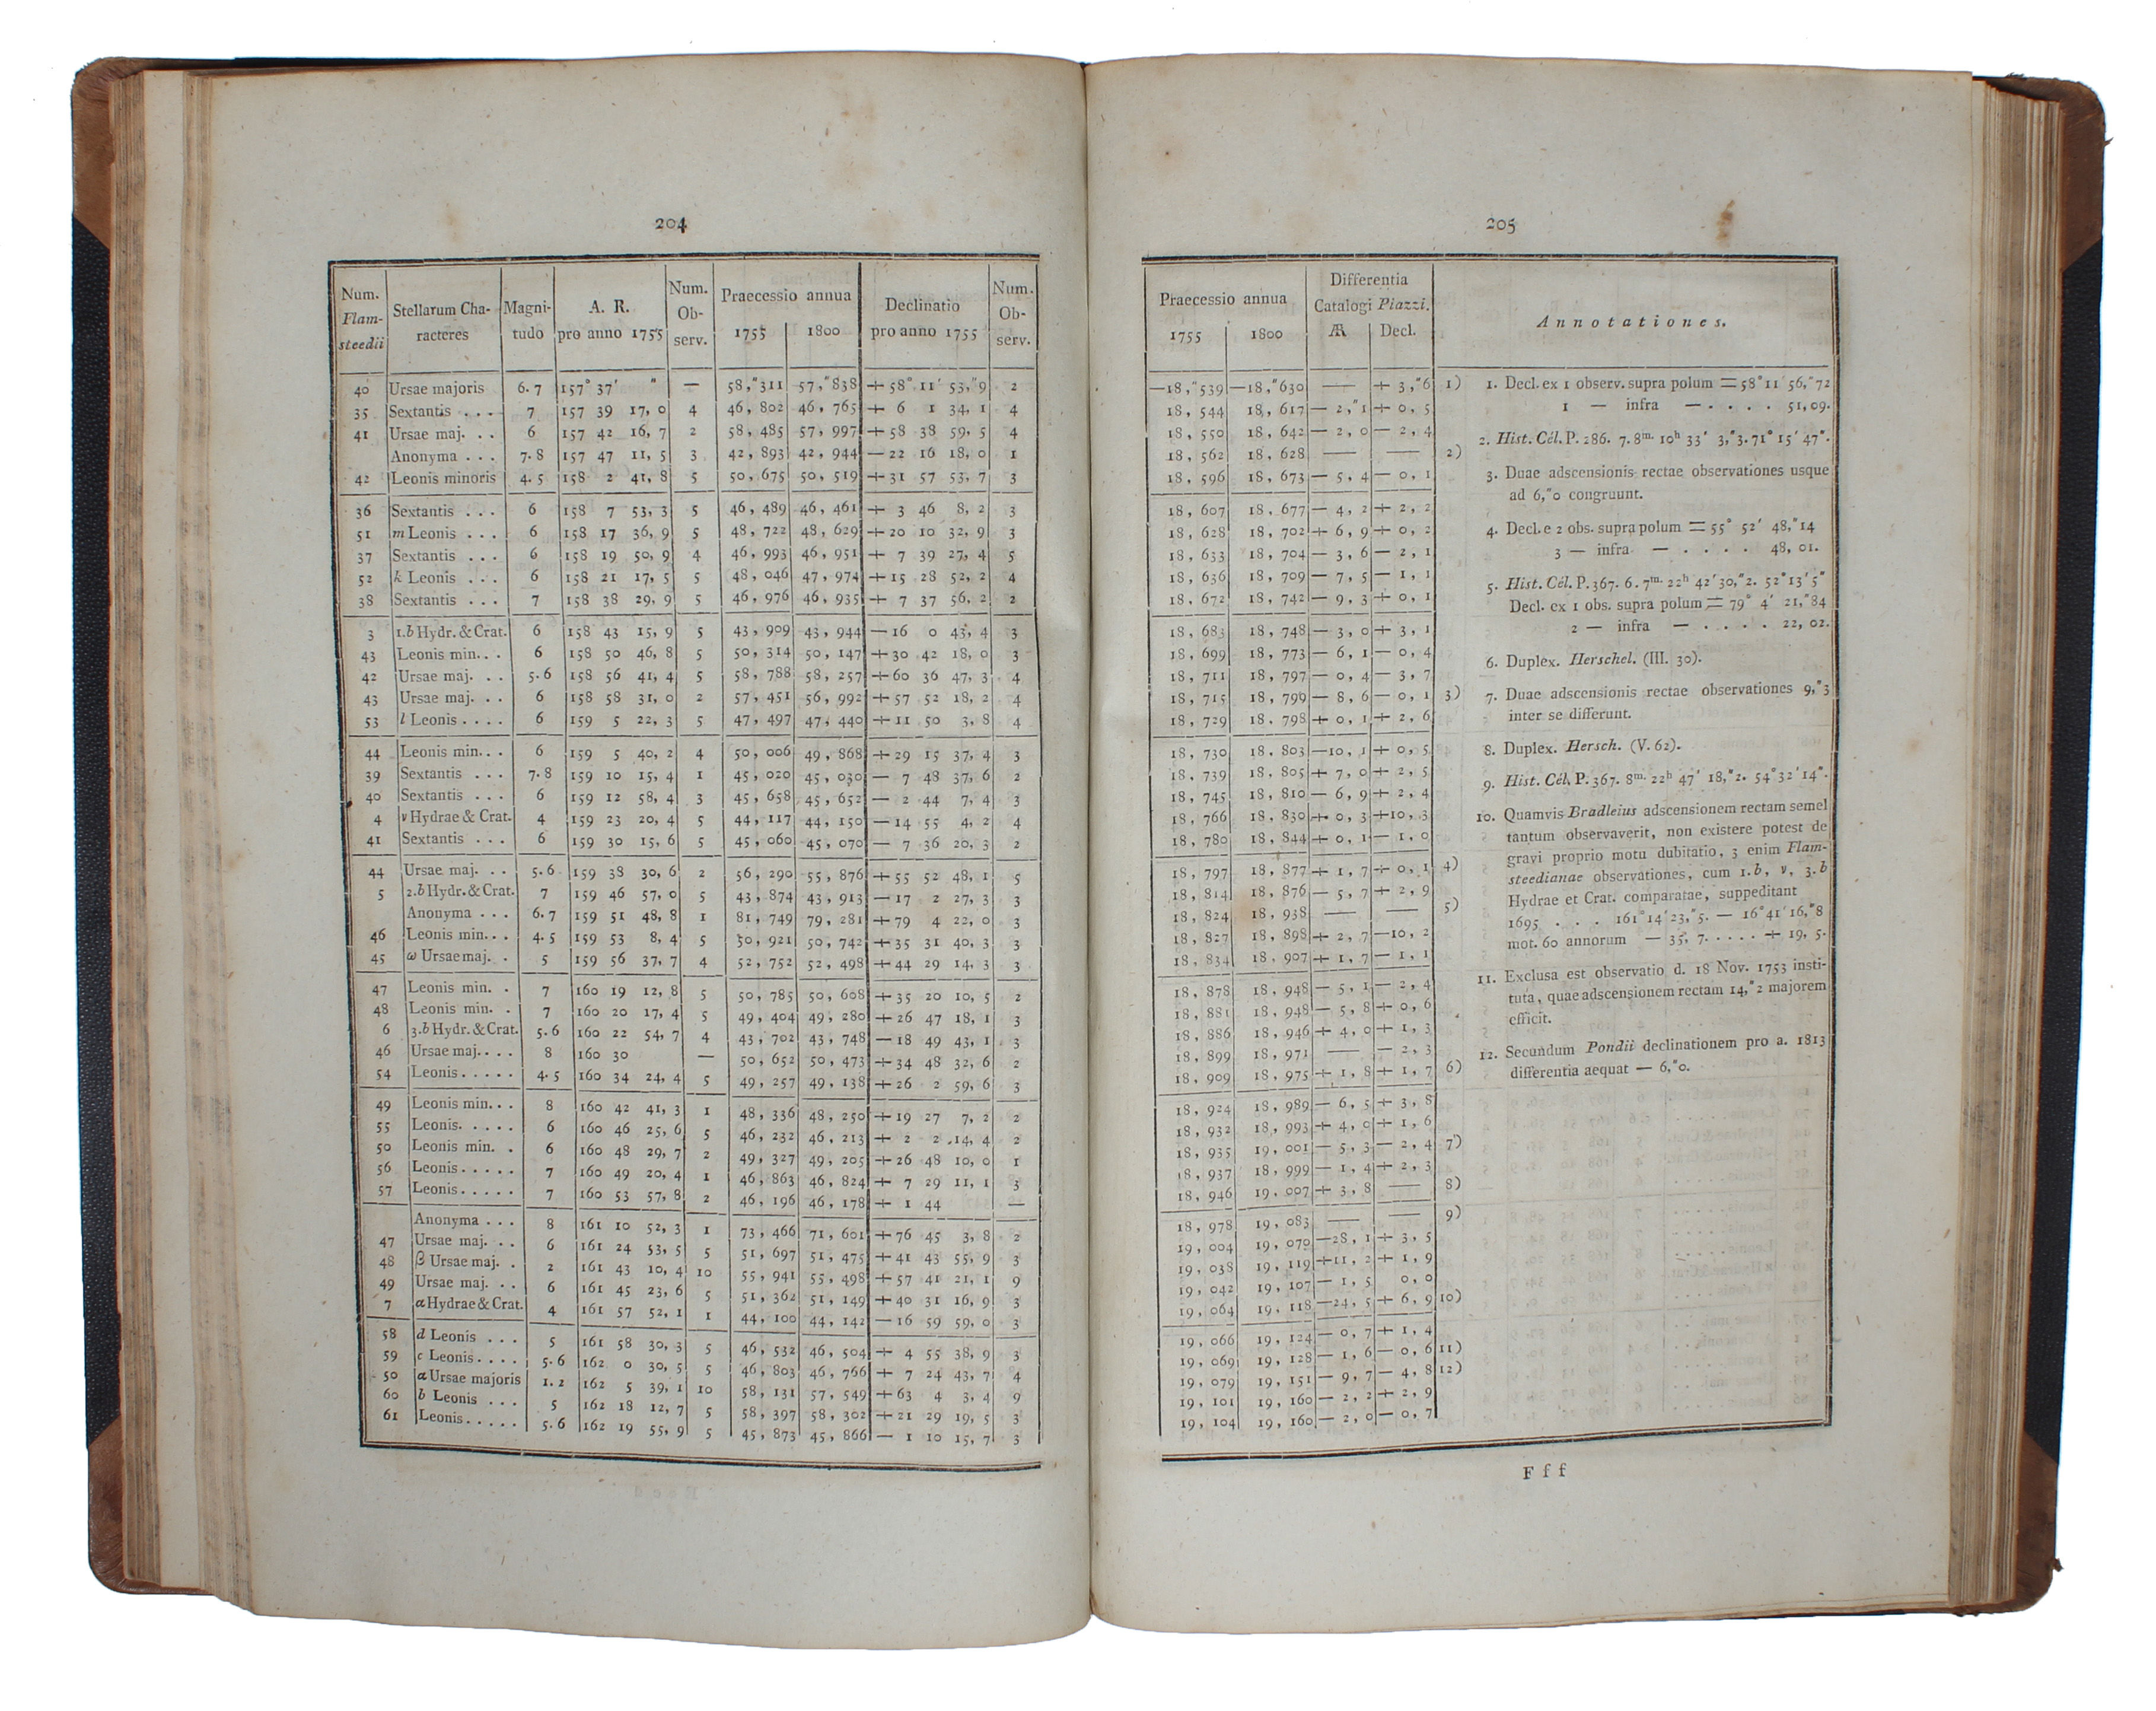 204
Num. Flamsteedii | Stellarum Characteres | Magnitudo | A. R. pro anno 1755 | Num. Observ. | Praecessio annua 1755 | 1800 | Declinatio pro anno 1755 | Num. Observ.
40 Ursae majoris 6.7 157° 37′ ″ — 58,″311 57,″838 + 58° 11′ 53,″9 2
35 Sextantis . . . 7 157 39 17, 0 4 46, 802 46, 765 + 6 1 34, 1 4
41 Ursae maj. . . 6 157 42 16, 7 2 58, 485 57, 997 + 58 38 59, 5 4
Anonyma . . . 7.8 157 47 11, 5 3 42, 893 42, 944 — 22 16 18, 0 1
42 Leonis minoris 4.5 158 2 41, 8 5 50, 675 50, 519 + 31 57 53, 7 3
36 Sextantis . . . 6 158 7 53, 3 5 46, 489 46, 461 + 3 46 8, 2 3
51 m Leonis . . . 6 158 17 36, 9 5 48, 722 48, 629 + 20 10 32, 9 3
37 Sextantis . . . 6 158 19 50, 9 4 46, 993 46, 951 + 7 39 27, 4 5
52 k Leonis . . . 6 158 21 17, 5 5 48, 046 47, 974 + 15 28 52, 2 4
38 Sextantis . . . 7 158 38 29, 9 5 46, 976 46, 935 + 7 37 56, 2 2
3 1.b Hydr. & Crat. 6 158 43 15, 9 5 43, 909 43, 944 — 16 0 43, 4 3
43 Leonis min. . . 6 158 50 46, 8 5 50, 314 50, 147 + 30 42 18, 0 3
42 Ursae maj. . . 5.6 158 56 41, 4 5 58, 788 58, 257 + 60 36 47, 3 4
43 Ursae maj. . . 6 158 58 31, 0 2 57, 451 56, 992 + 57 52 18, 2 4
53 l Leonis . . . . 6 159 5 22, 3 5 47, 497 47, 440 + 11 50 3, 8 4
44 Leonis min. . . 6 159 5 40, 2 4 50, 006 49, 868 + 29 15 37, 4 3
39 Sextantis . . . 7.8 159 10 15, 4 1 45, 020 45, 030 — 7 48 37, 6 2
40 Sextantis . . . 6 159 12 58, 4 3 45, 658 45, 652 — 2 44 7, 4 3
4 ν Hydrae & Crat. 4 159 23 20, 4 5 44, 117 44, 150 — 14 55 4, 2 4
41 Sextantis . . . 6 159 30 15, 6 5 45, 060 45, 070 — 7 36 20, 3 2
44 Ursae maj. . . 5.6 159 38 30, 6 2 56, 290 55, 876 + 55 52 48, 1 5
5 2.b Hydr. & Crat. 7 159 46 57, 0 5 43, 874 43, 913 — 17 2 27, 3 3
Anonyma . . . 6.7 159 51 48, 8 1 81, 749 79, 281 + 79 4 22, 0 3
46 Leonis min. . . 4.5 159 53 8, 4 5 50, 921 50, 742 + 35 31 40, 3 3
45 ω Ursae maj. . 5 159 56 37, 7 4 52, 752 52, 498 + 44 29 14, 3 3
47 Leonis min. . 7 160 19 12, 8 5 50, 785 50, 608 + 35 20 10, 5 2
48 Leonis min. . 7 160 20 17, 4 5 49, 404 49, 280 + 26 47 18, 1 3
6 3.b Hydr. & Crat. 5.6 160 22 54, 7 4 43, 702 43, 748 — 18 49 43, 1 3
46 Ursae maj. . . . 8 160 30 — 50, 652 50, 473 + 34 48 32, 6 2
54 Leonis . . . . . 4.5 160 34 24, 4 5 49, 257 49, 138 + 26 2 59, 6 3
49 Leonis min. . . 8 160 42 41, 3 1 48, 336 48, 250 + 19 27 7, 2 2
55 Leonis. . . . . 6 160 46 25, 6 5 46, 232 46, 213 + 2 2 14, 4 2
50 Leonis min. . 6 160 48 29, 7 2 49, 327 49, 205 + 26 48 10, 0 1
56 Leonis . . . . . 7 160 49 20, 4 1 46, 863 46, 824 + 7 29 11, 1 3
57 Leonis . . . . . 7 160 53 57, 8 2 46, 196 46, 178 + 1 44 —
Anonyma . . . 8 161 10 52, 3 1 73, 466 71, 601 + 76 45 3, 8 2
47 Ursae maj. . . 6 161 24 53, 5 5 51, 697 51, 475 + 41 43 55, 9 3
48 β Ursae maj. . 2 161 43 10, 4 10 55, 941 55, 498 + 57 41 21, 1 9
49 Ursae maj. . . 6 161 45 23, 6 5 51, 362 51, 149 + 40 31 16, 9 3
7 α Hydrae & Crat. 4 161 57 52, 1 1 44, 100 44, 142 — 16 59 59, 0 3
58 d Leonis . . . 5 161 58 30, 3 5 46, 532 46, 504 + 4 55 38, 9 3
59 c Leonis . . . . 5.6 162 0 30, 5 5 46, 803 46, 766 + 7 24 43, 7 4
50 α Ursae majoris 1.2 162 5 39, 1 10 58, 131 57, 549 + 63 4 3, 4 9
60 b Leonis . . . 5 162 18 12, 7 5 58, 397 58, 302 + 21 29 19, 5 3
61 Leonis . . . . . 5.6 162 19 55, 9 5 45, 873 45, 866 — 1 10 15, 7 3
205
Praecessio annua 1755 | 1800 | Differentia Catalogi Piazzi. AR | Decl. | Annotationes.
—18,″539 —18,″630 — + 3,″6 1)
18, 544 18, 617 — 2,″1 + 0, 5
18, 550 18, 642 — 2, 0 — 2, 4
18, 562 18, 628 — — 2)
18, 596 18, 673 — 5, 4 — 0, 1
18, 607 18, 677 — 4, 2 + 2, 2
18, 628 18, 702 + 6, 9 + 0, 2
18, 633 18, 704 — 3, 6 — 2, 1
18, 636 18, 709 — 7, 5 — 1, 1
18, 672 18, 742 — 9, 3 + 0, 1
18, 683 18, 748 — 3, 0 + 3, 1
18, 699 18, 773 — 6, 1 — 0, 4
18, 711 18, 797 — 0, 4 — 3, 7
18, 715 18, 799 — 8, 6 — 0, 1 3)
18, 729 18, 798 + 0, 1 + 2, 6
18, 730 18, 803 —10, 1 + 0, 5
18, 739 18, 805 + 7, 0 + 2, 5
18, 745 18, 810 — 6, 9 + 2, 4
18, 766 18, 830 + 0, 3 +10, 3
18, 780 18, 844 + 0, 1 — 1, 0
18, 797 18, 877 + 1, 7 + 0, 1 4)
18, 814 18, 876 — 5, 7 + 2, 9
18, 824 18, 938 — — 5)
18, 827 18, 898 + 2, 7 —10, 2
18, 834 18, 907 + 1, 7 — 1, 1
18, 878 18, 948 — 5, 1 — 2, 4
18, 881 18, 948 — 5, 8 + 0, 6
18, 886 18, 946 + 4, 0 + 1, 3
18, 899 18, 971 — — 2, 3
18, 909 18, 975 + 1, 8 + 1, 7 6)
18, 924 18, 989 — 6, 5 + 3, 8
18, 932 18, 993 + 4, 0 + 1, 6
18, 935 19, 001 — 5, 3 — 2, 4 7)
18, 937 18, 999 — 1, 4 + 2, 3
18, 946 19, 007 + 3, 8 — 8)
18, 978 19, 083 — — 9)
19, 004 19, 070 —28, 1 + 3, 5
19, 038 19, 119 +11, 2 + 1, 9
19, 042 19, 107 — 1, 5 0, 0
19, 064 19, 118 —24, 5 + 6, 9 10)
19, 066 19, 124 — 0, 7 + 1, 4
19, 069 19, 128 — 1, 6 — 0, 6 11)
19, 079 19, 151 — 9, 7 — 4, 8 12)
19, 101 19, 160 — 2, 2 + 2, 9
19, 104 19, 160 — 2, 0 — 0, 7
1. Decl. ex 1 observ. supra polum = 58° 11′ 56,″72
1 — infra — . . . . 51, 09.
2. Hist. Cél. P. 286. 7. 8m. 10h 33′ 3,″3. 71° 15′ 47″.
3. Duae adscensionis rectae observationes usque
ad 6,″0 congruunt.
4. Decl. e 2 obs. supra polum = 55° 52′ 48,″14
3 — infra — . . . . 48, 01.
5. Hist. Cél. P. 367. 6. 7m. 22h 42′ 30,″2. 52° 13′ 5″
Decl. ex 1 obs. supra polum = 79° 4′ 21,″84
2 — infra — . . . . 22, 02.
6. Duplex. Herschel. (III. 30).
7. Duae adscensionis rectae observationes 9,″3
inter se differunt.
8. Duplex. Hersch. (V. 62).
9. Hist. Cél. P. 367. 8m. 22h 47′ 18,″2. 54° 32′ 14″.
10. Quamvis Bradleius adscensionem rectam semel
tantum observaverit, non existere potest de
gravi proprio motu dubitatio, 3 enim Flam-
steedianae observationes, cum 1.b, ν, 3.b
Hydrae et Crat. comparatae, suppeditant
1695 . . . 161° 14′ 23,″5. — 16° 41′ 16,″8
mot. 60 annorum — 35, 7. . . . . + 19, 5.
11. Exclusa est observatio d. 18 Nov. 1753 insti-
tuta, quae adscensionem rectam 14,″2 majorem
efficit.
12. Secundum Pondii declinationem pro a. 1813
differentia aequat — 6,″0.
F f f